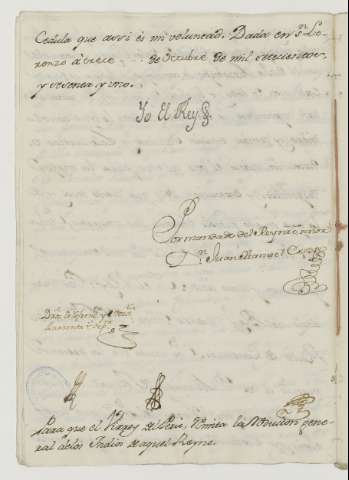 Cedula que assi és mi voluntad. Dada en Sn. Lo-
renzo à trece de Octubre de mil setecientos,
y sesenta, y uno.
Yo El Rey
Por mandado del Rey nro. señor
Dn. Juan Manuel Crespo
Para que el Virrey de el Perú, remita la Numeracion gene-
ral de los Indios de aquel Reyno.